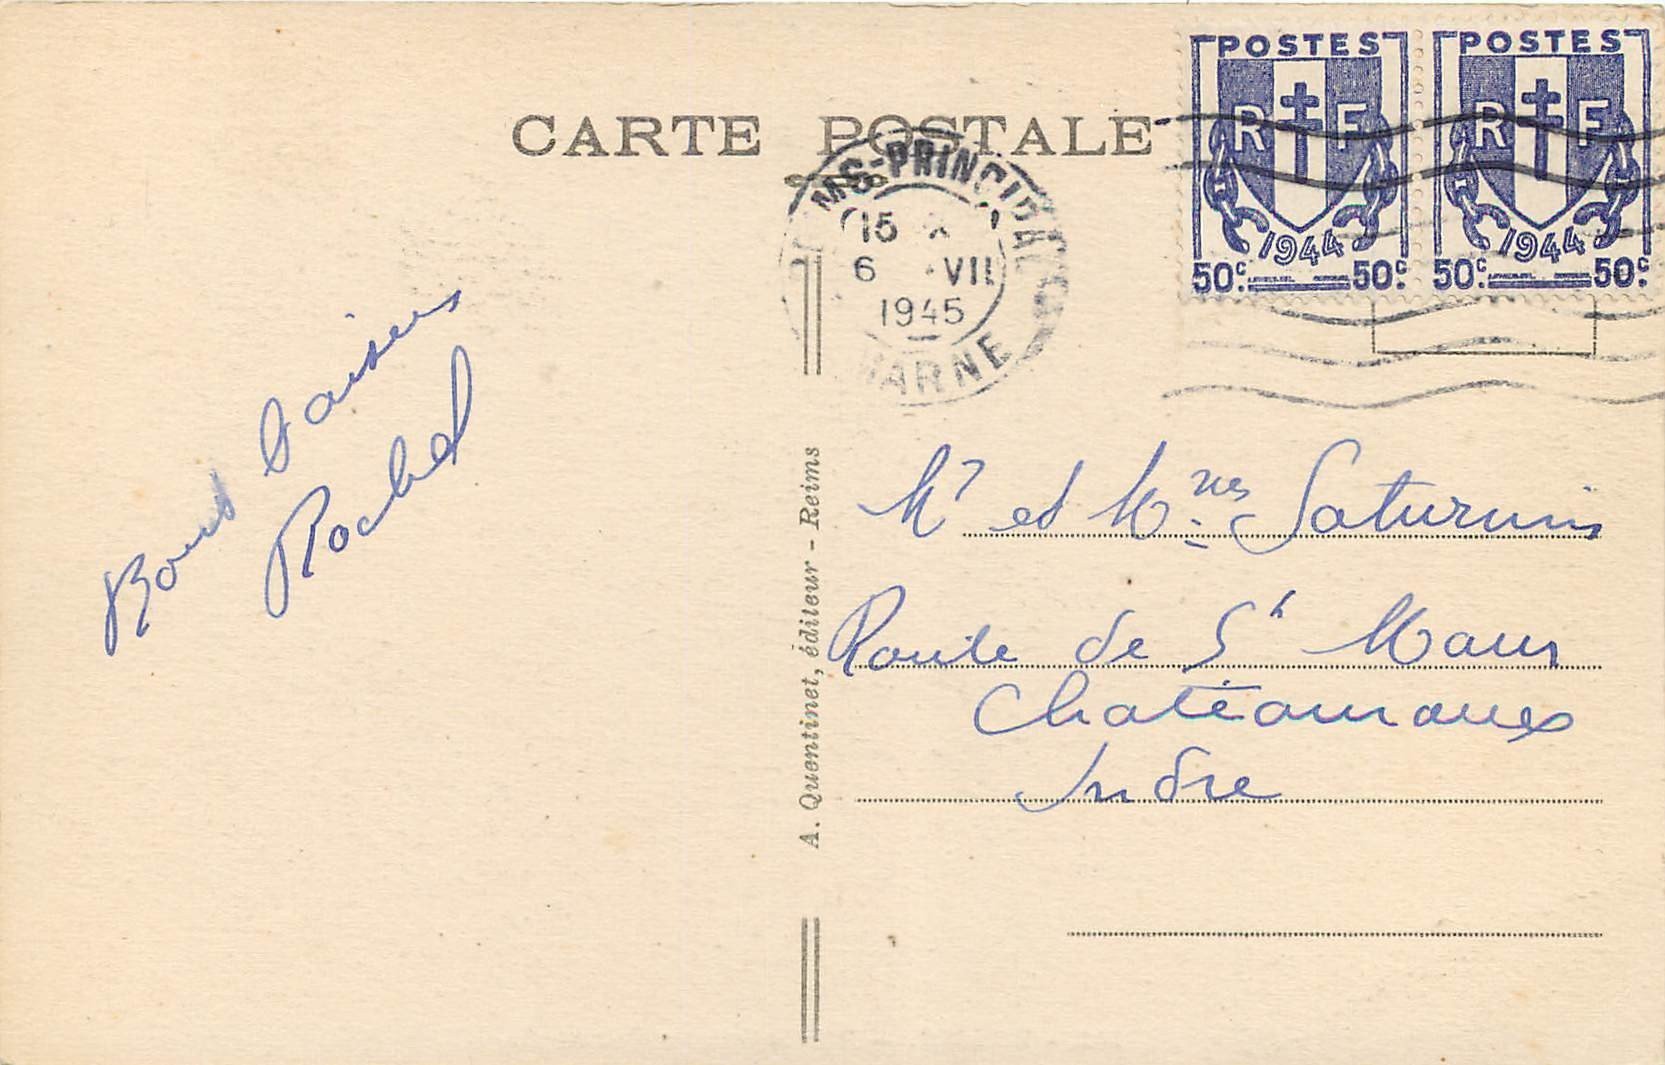 CARTE POSTALE
POSTES
RF
1944
50c. 50c.
POSTES
RF
1944
50c. 50c.
MS-PRINCIPAL
15
6 VII
1945
MARNE
Bons baisers
Rachel
A. Quentinet, éditeur - Reims
Mr et Mmes Saturnin
Route de St Maur
Chateauroux
Indre